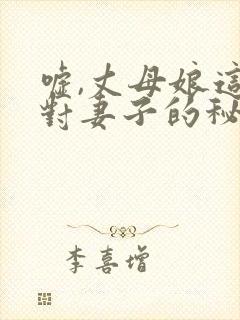 噓,丈母娘這
對妻子的秘
李喜增